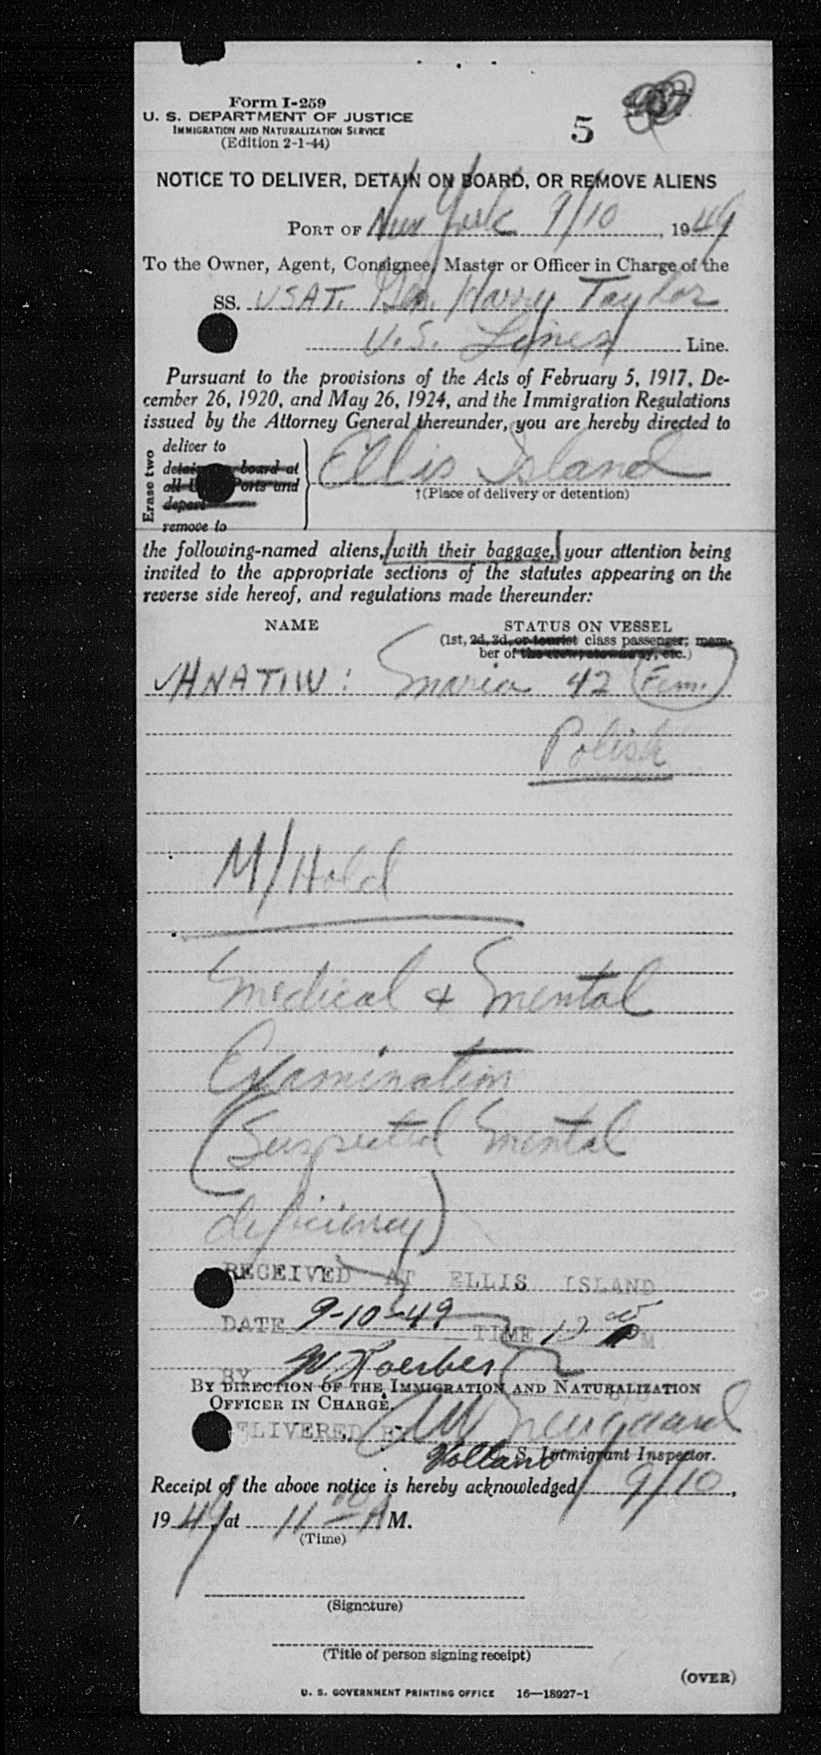 Form I-259
U. S. DEPARTMENT OF JUSTICE
IMMIGRATION AND NATURALIZATION SERVICE
(Edition 2-1-44)
5
NOTICE TO DELIVER, DETAIN ON BOARD, OR REMOVE ALIENS
PORT OF New York 9/10, 1949
To the Owner, Agent, Consignee, Master or Officer in Charge of the
SS. USAT. Gen. Harry Taylor
U.S. Lines Line.
Pursuant to the provisions of the Acts of February 5, 1917, De-
cember 26, 1920, and May 26, 1924, and the Immigration Regulations
issued by the Attorney General thereunder, you are hereby directed to
Erase two
deliver to
detain on board at
all U. S. Ports and
depart
remove to
Ellis Island
†(Place of delivery or detention)
the following-named aliens, with their baggage, your attention being
invited to the appropriate sections of the statutes appearing on the
reverse side hereof, and regulations made thereunder:
NAME STATUS ON VESSEL
(1st, 2d, 3d, or tourist class passenger; mem-
ber of the crew, stowaway, etc.)
HNATIW: Maria 42 (Fem.)
Polish
M/Hold
Medical & Mental
Examination
(Suspected mental
deficiency)
RECEIVED AT ELLIS ISLAND
DATE 9-10-49 TIME 12 00 PM
BY W. Koerber
BY DIRECTION OF THE IMMIGRATION AND NATURALIZATION
OFFICER IN CHARGE,
DELIVERED BY
S. Immigrant Inspector.
Receipt of the above notice is hereby acknowledged 9/10,
1949, at 11 00 A M.
(Time)
(Signature)
(Title of person signing receipt)
(OVER)
U. S. GOVERNMENT PRINTING OFFICE 16—18927-1